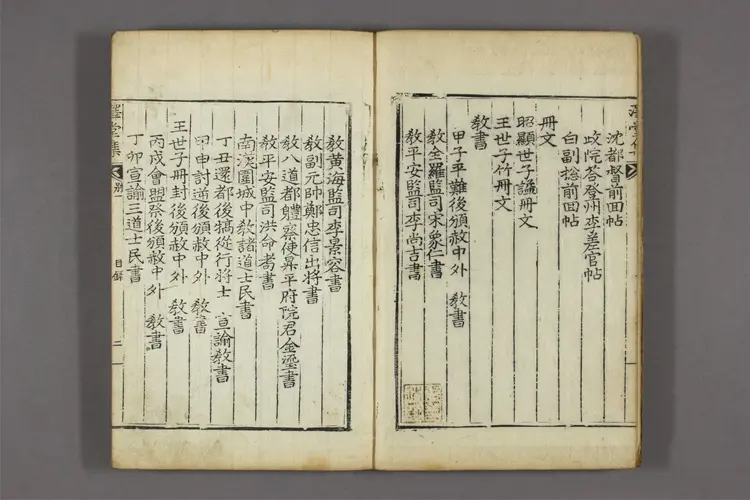 沈都督前回帖
政院答登州李差官帖
白副摠前回帖
冊文
昭顯世子謚冊文
王世子竹冊文
敎書
甲子平難後頒赦中外 敎書
敎全羅監司宋象仁書
敎平安監司李尚吉書
敎黃海監司李景容書
敎副元帥鄭忠信出將書
敎八道都軆察使昇平府院君金瑬書
敎平安監司洪命耉書
南漢圍城中敎諸道士民書
丁丑還都後犒從行將士 宣諭敎書
甲申討逆後頒赦中外 敎書
王世子冊封後頒赦中外 敎書
丙戌會盟祭後頒赦中外 敎書
丁卯宣諭三道士民書
澤堂集 別一 目錄 二